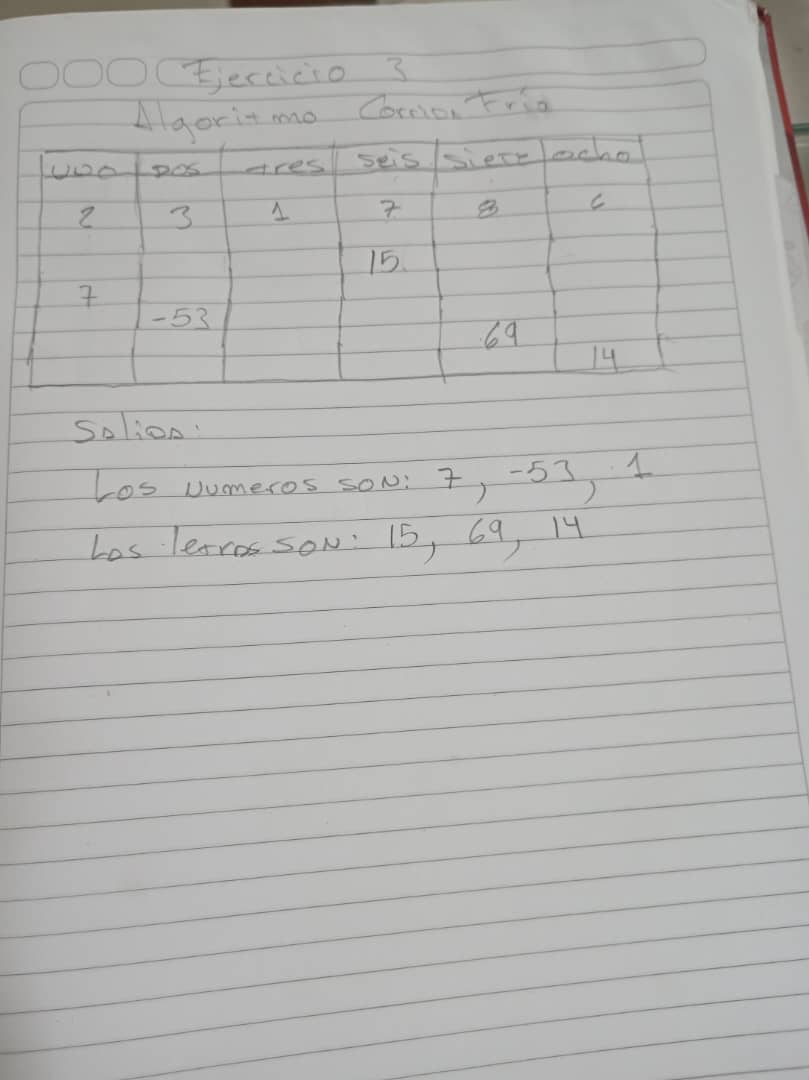 Ejercicio 3
Algoritmo Corrion Fria
uno dos tres seis siete ocho
2 3 1 7 8 6
15
7
-53
69
14
Salida:
Los numeros son: 7, -53, 1
Las letras son: 15, 69, 14